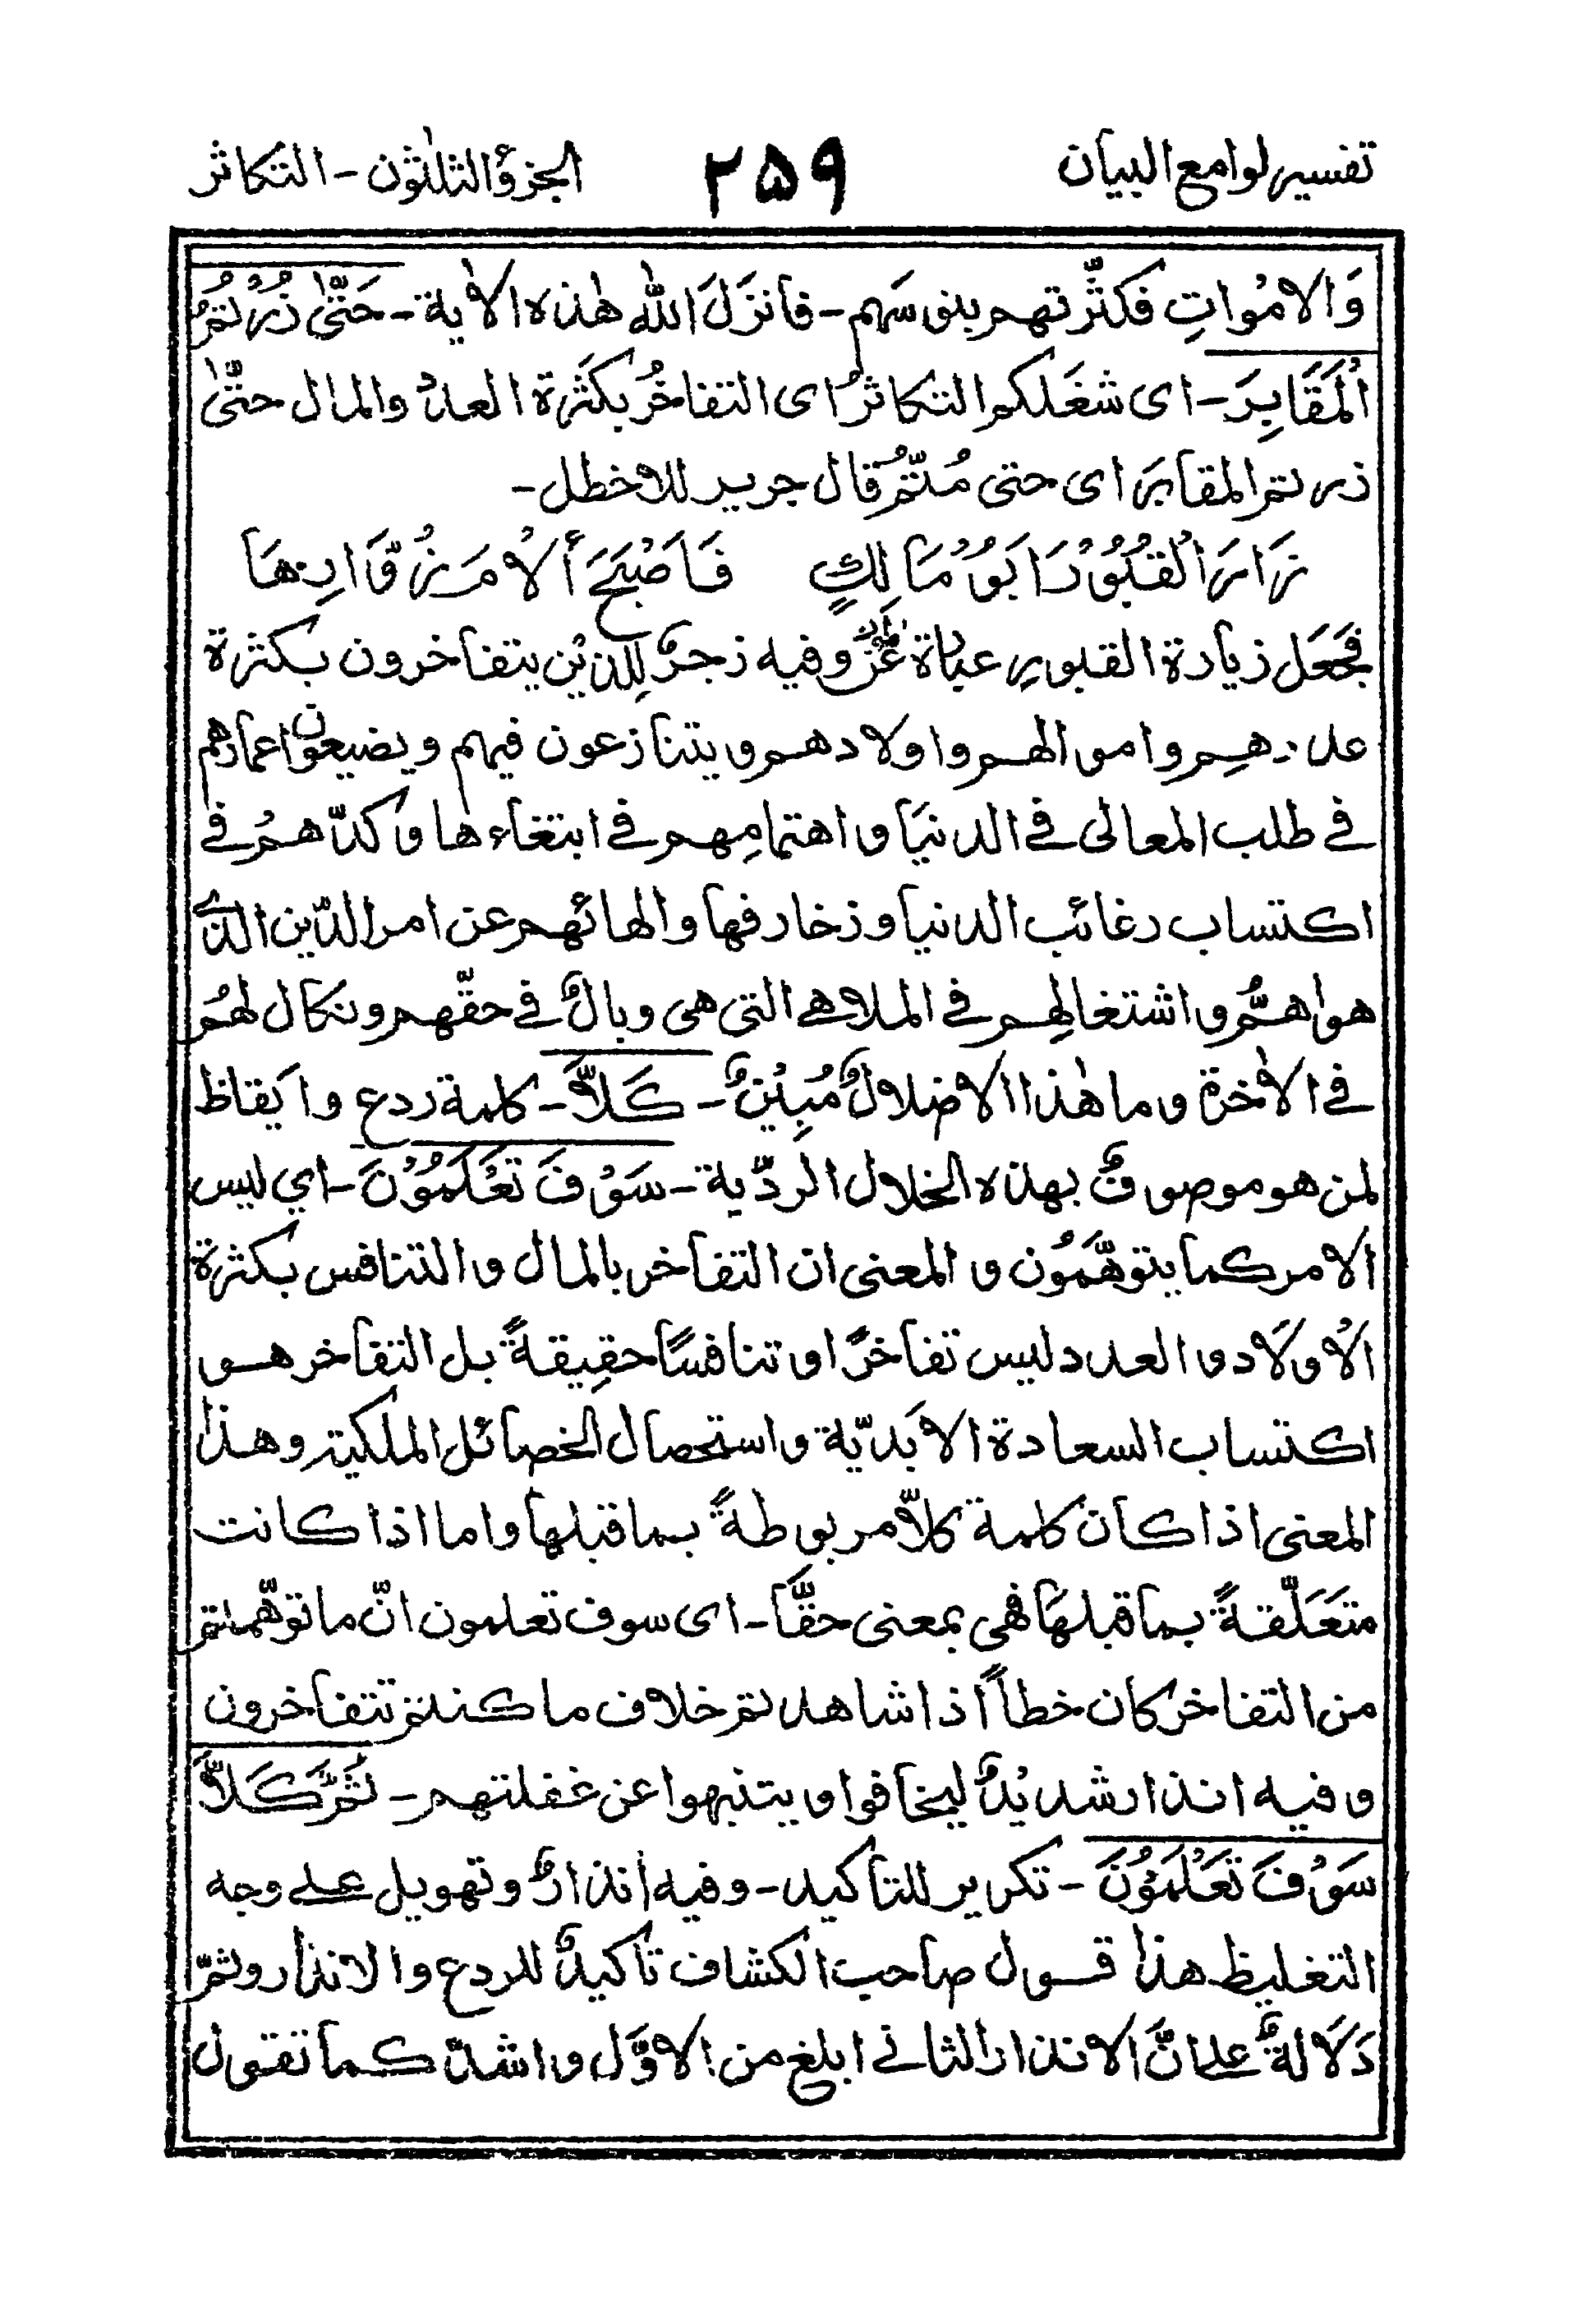 تفسیر لوامع البیان ۲۵۹ الجزؤ الثلٰثون - التکاثر
وَالامْواتِ فکثّرتهم بنو سَهم - فانزَلَ اللّٰه هٰذه الاٰیة - حَتّٰی زُرْتُمُ
الْمَقَابِرَ - ای شغَلکم التکاثرُ ای التفاخُر بکثَرة العددْ والمال حتّٰی
زرتم المقابر ای حتی مُتّمُ قال جریر للاخطل -
زَارَ الْقُبُوْرَ اَبُوْ مَالِكٍ فَاَصْبَحَ أَلْاَمَ زُوَّارِهَا
فجَعَل زیارة القبور عبارة عن وفیه زجرٌ للِّذیْن یتفاخرون بکثرة
عددهِم وامو الهم واولادهم ویتنازعون فیهم ویضیعون اعمارهم
فے طلب المعالی فے الدنیَا واهتمامِهم فے ابتغاءها وکدّهمُ فے
اکتساب رغائب الدنیا وزخارفها والهائهم عن امر الدّین الذّے
هو اهمُّ واشتغالِهم فے الملاهے التی هی وبالٌ فے حقّهم ونکال لهمُ
فے الاٰخرة وما هٰذا الاضلالٌ مُبِیْنٌ - کَلَّا - کلمة ردع وایقاظ
لمن هو موصوفٌ بهذه الخلال الردّیة - سَوْفَ تَعْلَمُوْنَ - اي لیس
الامر کما یتوهَّمُون و المعنی ان التفاخر بالمال و التنافس بکثرة
الْاولَاد و العدد لیس تفاخرًا وتنافسًا حقِیقةً بل التفاخر هو
اکتساب السعادة الابَدیّة واستحصال الخصائل الملکیة وهذا
المعنی اذا کان کلمة کلّا مربوطةً بما قبلها واما اذا کانت
متعَلّقةً بما قبلهَا فهی بمعنی حقًّا - ای سوف تعلمون انّ ما توهّمتم
من التفاخر کان خطاً اذا شاهدتم خلاف ما کنتم تتفاخرون
وفیه انذار شدیْدٌ لیخافوا ویتنبهوا عن غفلتهم - ثُمَّ کَلَّا
سَوْفَ تَعْلَمُوْنَ - تکریر للتاکید - وفیه انذارٌ وتهویل علے وجه
التغلیظ هذا قول صاحب الکشاف تاکیدٌ للردع والانذار وثمّ
دَلَالةٌ علے انَّ الانذار الثانے ابلغ من الاوَّل واشدّ کما تقول